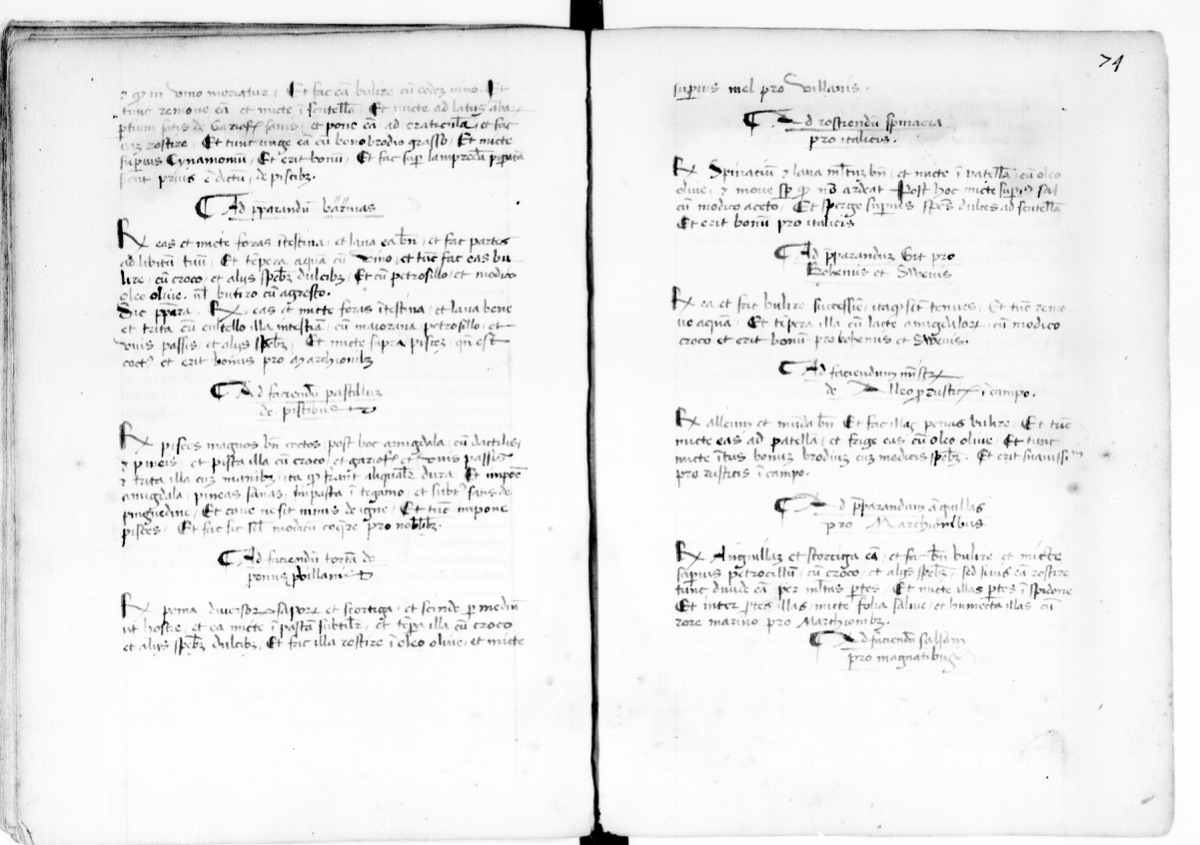 ⁊ qꝫ in vino moriatur, Et fac eā bulire cū eodeꝫ vino, Et
tunc remove eā, et micte ī scutellā, Et micte ad latus
satis de Garioff sanis, et pone eā ad craticulā, et fac
eaꝫ rostire, Et tunc unge eā cū bono brodio grasso, Et micte
supius Cynamomū, Et erit bonū, Et fac sup lampredā
sicut prius ē dictū, de piscibꝫ.
Ad pparandum
Rx eas et micte foras ītestina, et lava ea bn̄, et fac partes
ad libitū tuū, Et tēpera aquā cū vino, et tūc fac eas bu
lire, cū croco, et alijs spēbꝫ dulcibꝫ, Et cū petrosillo, et modico
oleo olive, ul butiro cū agresto.
Sic ppara. Rx eas et micte foras ītestina, et lava bene
et trita cū cultello illa intestīa, cū maiorana petrosillo, et
vuis passis, et alijs spēbꝫ, Et micte supra pisceꝫ, qn̄ est
coctꝰ, et erit bonus pro Marchionibꝫ
Ad faciendū pastillum
de piscibus
Rx pisces magnos bn̄ coctos, post hoc amigdala, cū dactilis,
⁊ pineis, et pista illa cū croco, et garioff, et vuis passis
⁊ trita illa cuꝫ manibꝫ, ita qꝫ aliqualr̄ dura, Et impone
amigdala, pineas sanas, in pasta ī tegamo, et subtꝰ satis de
pinguedine, Et cave ne sit nimis de igne, Et tūc impone
pisces, Et fac sic sil modicū coqre pro nobilibꝫ.
Ad faciendū tortā de
pomis pro villanis
Rx poma diversoꝝ sapoꝝ et scortiga, et scinde p mediū
ut hostie, et ea micte ī pastā subtilr̄, et tēpa illa cū croco
et alijs spēbꝫ dulcibꝫ, Et fac illa rostire ī oleo olive, et micte
74
supius mel pro Villanis.
Ad rostiendū spinacia
pro italicis.
Rx Spinaciū ⁊ lava mltꝫ bn̄, et micte ī patellā cū oleo
olive, ⁊ move sp qꝫ nō ardeat Post hoc micte supius sal
cū modico aceto, Et sperge supius spēs dulces ad scutellā
Et erit bonū pro italicis
Ad pparanduꝫ pro
Bohemis et Swevis
Rx ea et fac bulire successīe, itaqꝫ sint tenues, Et tūc remo
ve aquā, Et tēpera illa cū lacte amigdaloꝝ, cū modico
croco et erit bonū pro bohemis et Swevis.
Ad faciendum
de Alleo p rusticꝭ ī campo.
Rx alleum et mūda bn̄ Et fac illas bulire, Et tūc
micte eas ad patellā, et frige eas cū oleo olive, Et tunc
micte ītus bonuꝫ brodiuꝫ cuꝫ modicis spēbꝫ, Et erit suavissi
pro rusticis ī campo.
Ad pparandum āguillas
pro Marchionibus
Rx Anguillaꝫ et scortiga eā, et fac bn̄ bulire, et micte
supius petrocillū, cū croco, et alijs spēbꝫ, sed si vis eā rostire
tunc divide eā per mltas ptes, Et micte illas ptes ī spidone
Et inter ptes illas, micte folia salvie, et humecta illas cū
rore marino pro Marchionibꝫ
Ad faciendū salsam
pro magnatibus